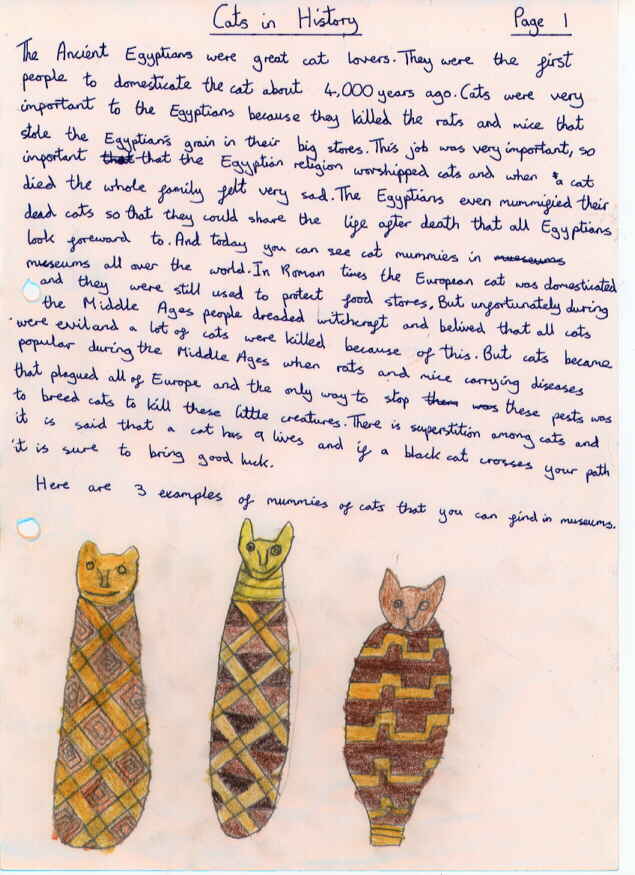 Cats in History Page 1
The Ancient Egyptians were great cat lovers. They were the first
people to domesticate the cat about 4,000 years ago. Cats were very
important to the Egyptians because they killed the rats and mice that
stole the Egyptian's grain in their big stores. This job was very important, so
important that that the Egyptian religion worshipped cats and when a cat
died the whole family felt very sad. The Egyptians even mummified their
dead cats so that they could share the life after death that all Egyptians
look foreward to. And today you can see cat mummies in museums
museums all over the world. In Roman times the European cat was domesticated
and they were still used to protect food stores. But unfortunately during
the Middle Ages people dreaded witchcraft and belived that all cats
were evil and a lot of cats were killed because of this. But cats became
popular during the Middle Ages when rats and mice carrying diseases
that plagued all of Europe and the only way to stop them was these pests was
to breed cats to kill these little creatures. There is superstition among cats and
it is said that a cat has 9 lives and if a black cat crosses your path
it is sure to bring good luck.
Here are 3 examples of mummies of cats that you can find in museums.